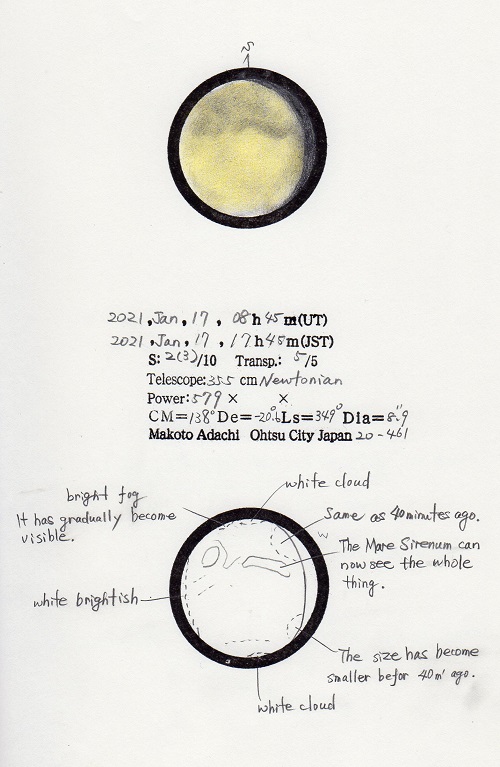 S
2021, Jan, 17, 08h 45m(UT)
2021, Jan, 17, 17h 45m(JST)
S: 2(3)/10 Transp.: 5/5
Telescope: 355 cm Newtonian
Power: 579 × ×
CM=138° De=-20.6° Ls=349° Dia=8.9"
Makoto Adachi Ohtsu City Japan 20-461
white cloud
bright fog
It has gradually become
visible.
Same as 40 minutes ago.
W
The Mare Sirenum can
now see the whole
thing.
white brightish
The size has become
smaller befor 40m' ago.
white cloud